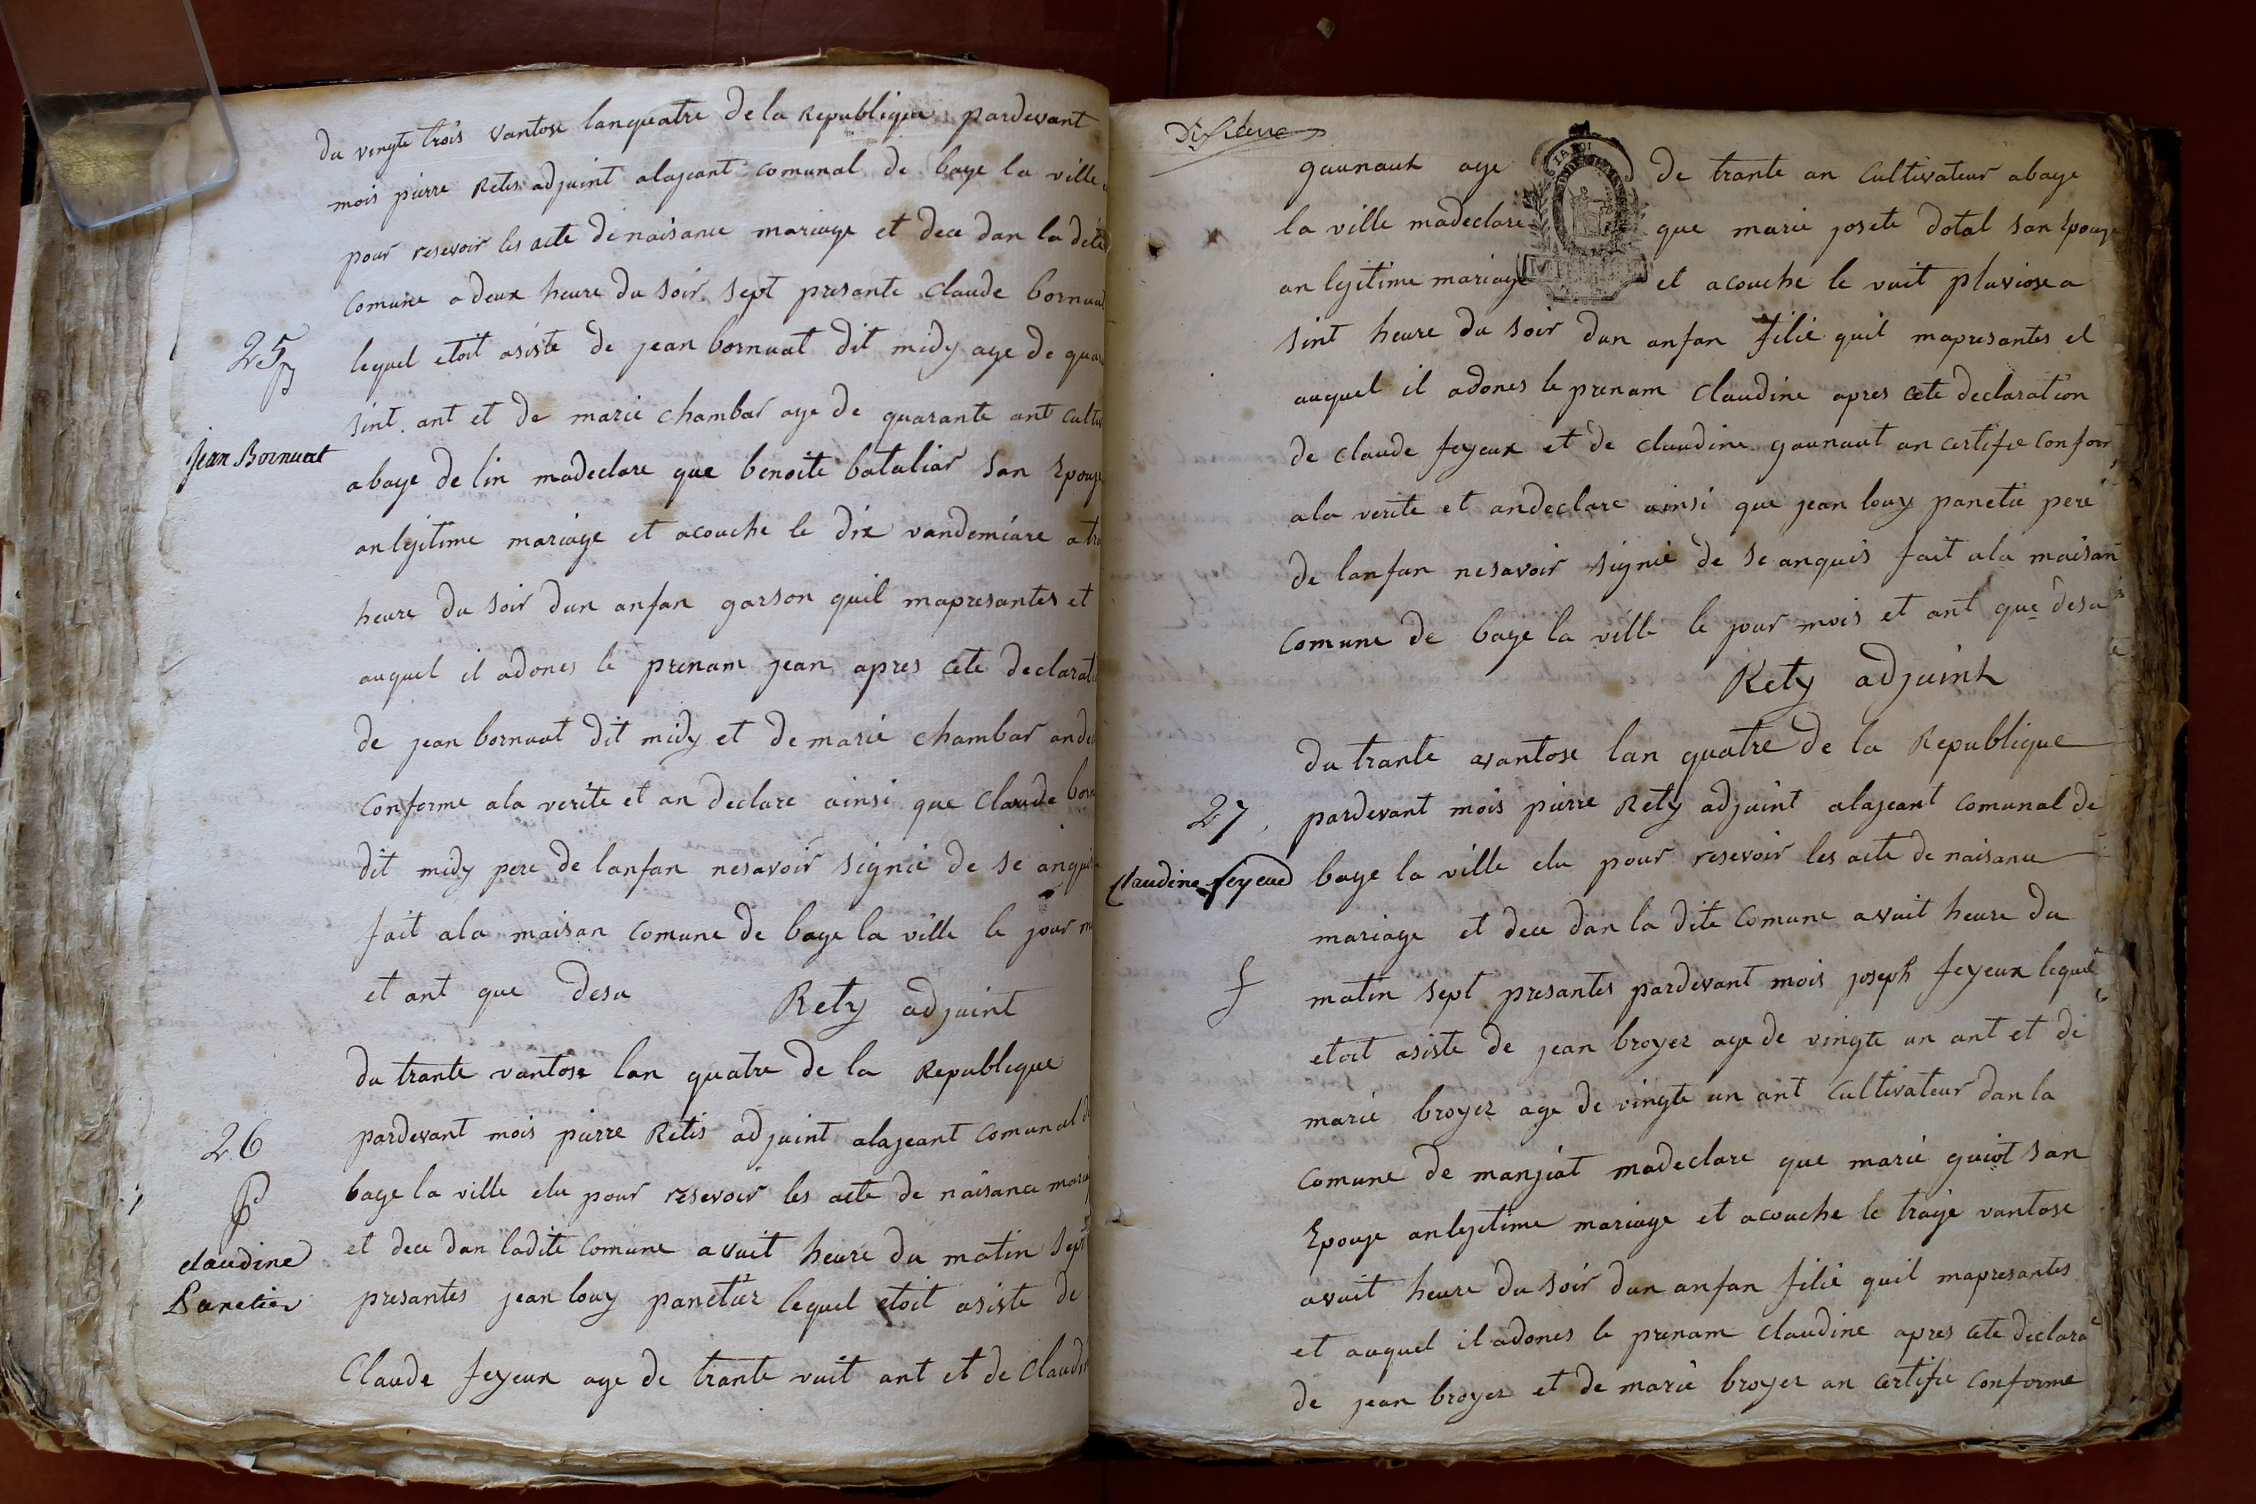 du vingte trois vantose lanquatre de la Republique pardevant
mois pierre Retis adjuint alajeant comunal de bage la ville
pour resevoir les acte de naisance mariage et dece dan la dite
comune a deux heure du soir sept presante claude bornuat
25
lequel etoit asiste de jean bornuat dit midy age de
sint ant et de marie chambar age de quarante ant
Jean Bornuat
abage de lin madeclare que benoite bataliar san Epouje
anlejitime mariage et acouche le dix vandemiare a
heure du soir dun anfan garson quil mapresantes et
auquel il adones le prenam jean apres cete
de jean bornuat dit midy et de marie chambar
conforme ala verite et an declare ainsi que claude
dit midy pere de lanfan nesavoir signie de se
fait ala maisan comune de bage la ville le jour
et ant que desu
Rety adjuint
du trante vantose lan quatre de la Republique
26
pardevant mois pierre Retis adjuint alajeant comunal
bage la ville elu pour resevoir les acte de naisance
et dece dan ladite comune avuit heure du matin sept
claudine
Panetier
presantes jean louy panetier lequel etoit asiste de
Claude feyeux age de trante vuit ant et de
gaunaut age de trante an cultivateur abage
la ville madeclare que marie josete dotal san Epouje
an lejitime mariage et acouche le vuit pluviose a
sint heure du soir dun anfan filie quil mapresantes et
auquel il adones le prenam claudine apres cete declaration
de claude feyeux et de claudine gaunaut an certifie
ala verite et andeclare ainsi que jean louy panetie pere
de lanfan nesavoir signie de se anquis fait ala maisan
comune de bage la ville le jour mois et ant que desu
Rety adjuint
du trante avantose lan quatre de la Republique
27
pardevant mois pierre Rety adjuint alajeant comunal de
Claudine feyeux
bage la ville elu pour resevoir les acte de naisance
mariage et dece dan la dite comune avuit heure du
matin sept presantes pardevant mois joseph feyeux lequel
etoit asiste de jean broyer age de vingte un ant et de
marie broyer age de vingte un ant cultivateur dan la
comune de manjiat madeclare que marie guiot san
Epouje anlejitime mariage et acouche le traije vantose
avuit heure du soir dun anfan filie quil mapresantes
et auquel il adones le prenam claudine apres cete
de jean broyer et de marie broyer an certifie conforme